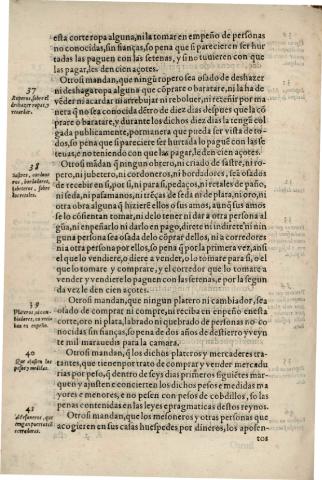 esta corte ropa alguna, ni la tomar en empeño de personas
no conocidas, sin fianças, so pena que si pareciere ser hur
tadas las paguen con las setenas, y si no tuuieren con que
las pagar, les den cien açotes.
Otrosi mãdan, que ningũ ropero sea osado de deshazer
ni deshaga ropa alguna que cõprare o baratare, ni la ha de
vẽder ni acardar ni arrebujar ni reboluer, ni rezenir por ma
nera q̃ no sea conocida dẽtro de diez dias despues que la cõ
prare o baratare, y durante los dichos diez dias la tengã col
gada publicamente, por manera que pueda ser vista de to-
dos, so pena que si pareciere ser hurtada lo pagué con las se
tenas, e no teniendo con que las pagar, le den cien açotes.
Otrosi mãdan q̃ ninguno obrero, ni criado de sastre, ni ro-
pero, ni jubetero, ni cordoneros, ni bordadores, seã osados
de recebir en si, por si, ni para si, pedaços, ni retales de paño,
ni seda, ni pasamanos, ni trẽças de seda ni de plata, ni oro, ni
otra obra alguna q̃ hiziere ellos o sus amos, aunq̃ sus amos
se lo cõsientan tomar, ni delo tener ni dar a otra persona al
gũa, ni enpeñarlo ni darlo en pago, direte ni indirete ni nin
guna persona sea osada delo cõprar dellos, ni a corredores
ni a otra persona por ellos, so pena q̃ por la primera vez, ansi
el que lo vendiere, o diere a vender, o lo tomare para si, o el
que lo tomare y comprare, y el corredor que lo tomare a
vender y vendiere lo paguen con las setenas, e por la segun
da vez le den cien açotes.
Otrosi mandan, que ninguno platero ni cambiador, sea
osado de comprar ni compre, ni reciba en enpeño en esta
corte, oro ni plata, labrado ni quebrado de personas no co
nocidas sin fianças, so pena de dos años de destierro y veyn
te mil marauedis para la camara.
Otrosi mandan, q̃ los dichos plateros y mercaderes tra-
tantes, que tienen por trato de comprar y vender mercadu
rias por peso, q̃ dentro de seys dias primeros siguiẽtes mar
quen y ajusten e concierten los dichos pesos e medidas ma
yores e menores, e no pesen con pesos de cobdillos, so las
penas contenidas en las leyes e pragmaticas destos reynos.
Otrosi mandan, que los mesoneros y otras personas que
acogieren en sus casas huespedes por dineros, los aposen-
tos
37
Roperos, sobre el
deshazer ropas, y
38
Sastres, cordone
ros, bordadores,
jubeteros, sobre
los retales.
39
Plateros, ni cam-
biadores, no reciban
en enpeño.
40
Que ajusten los
pesos y medidas.
41
Mesoneros, que
tengan puertas cõ
cerraduras.